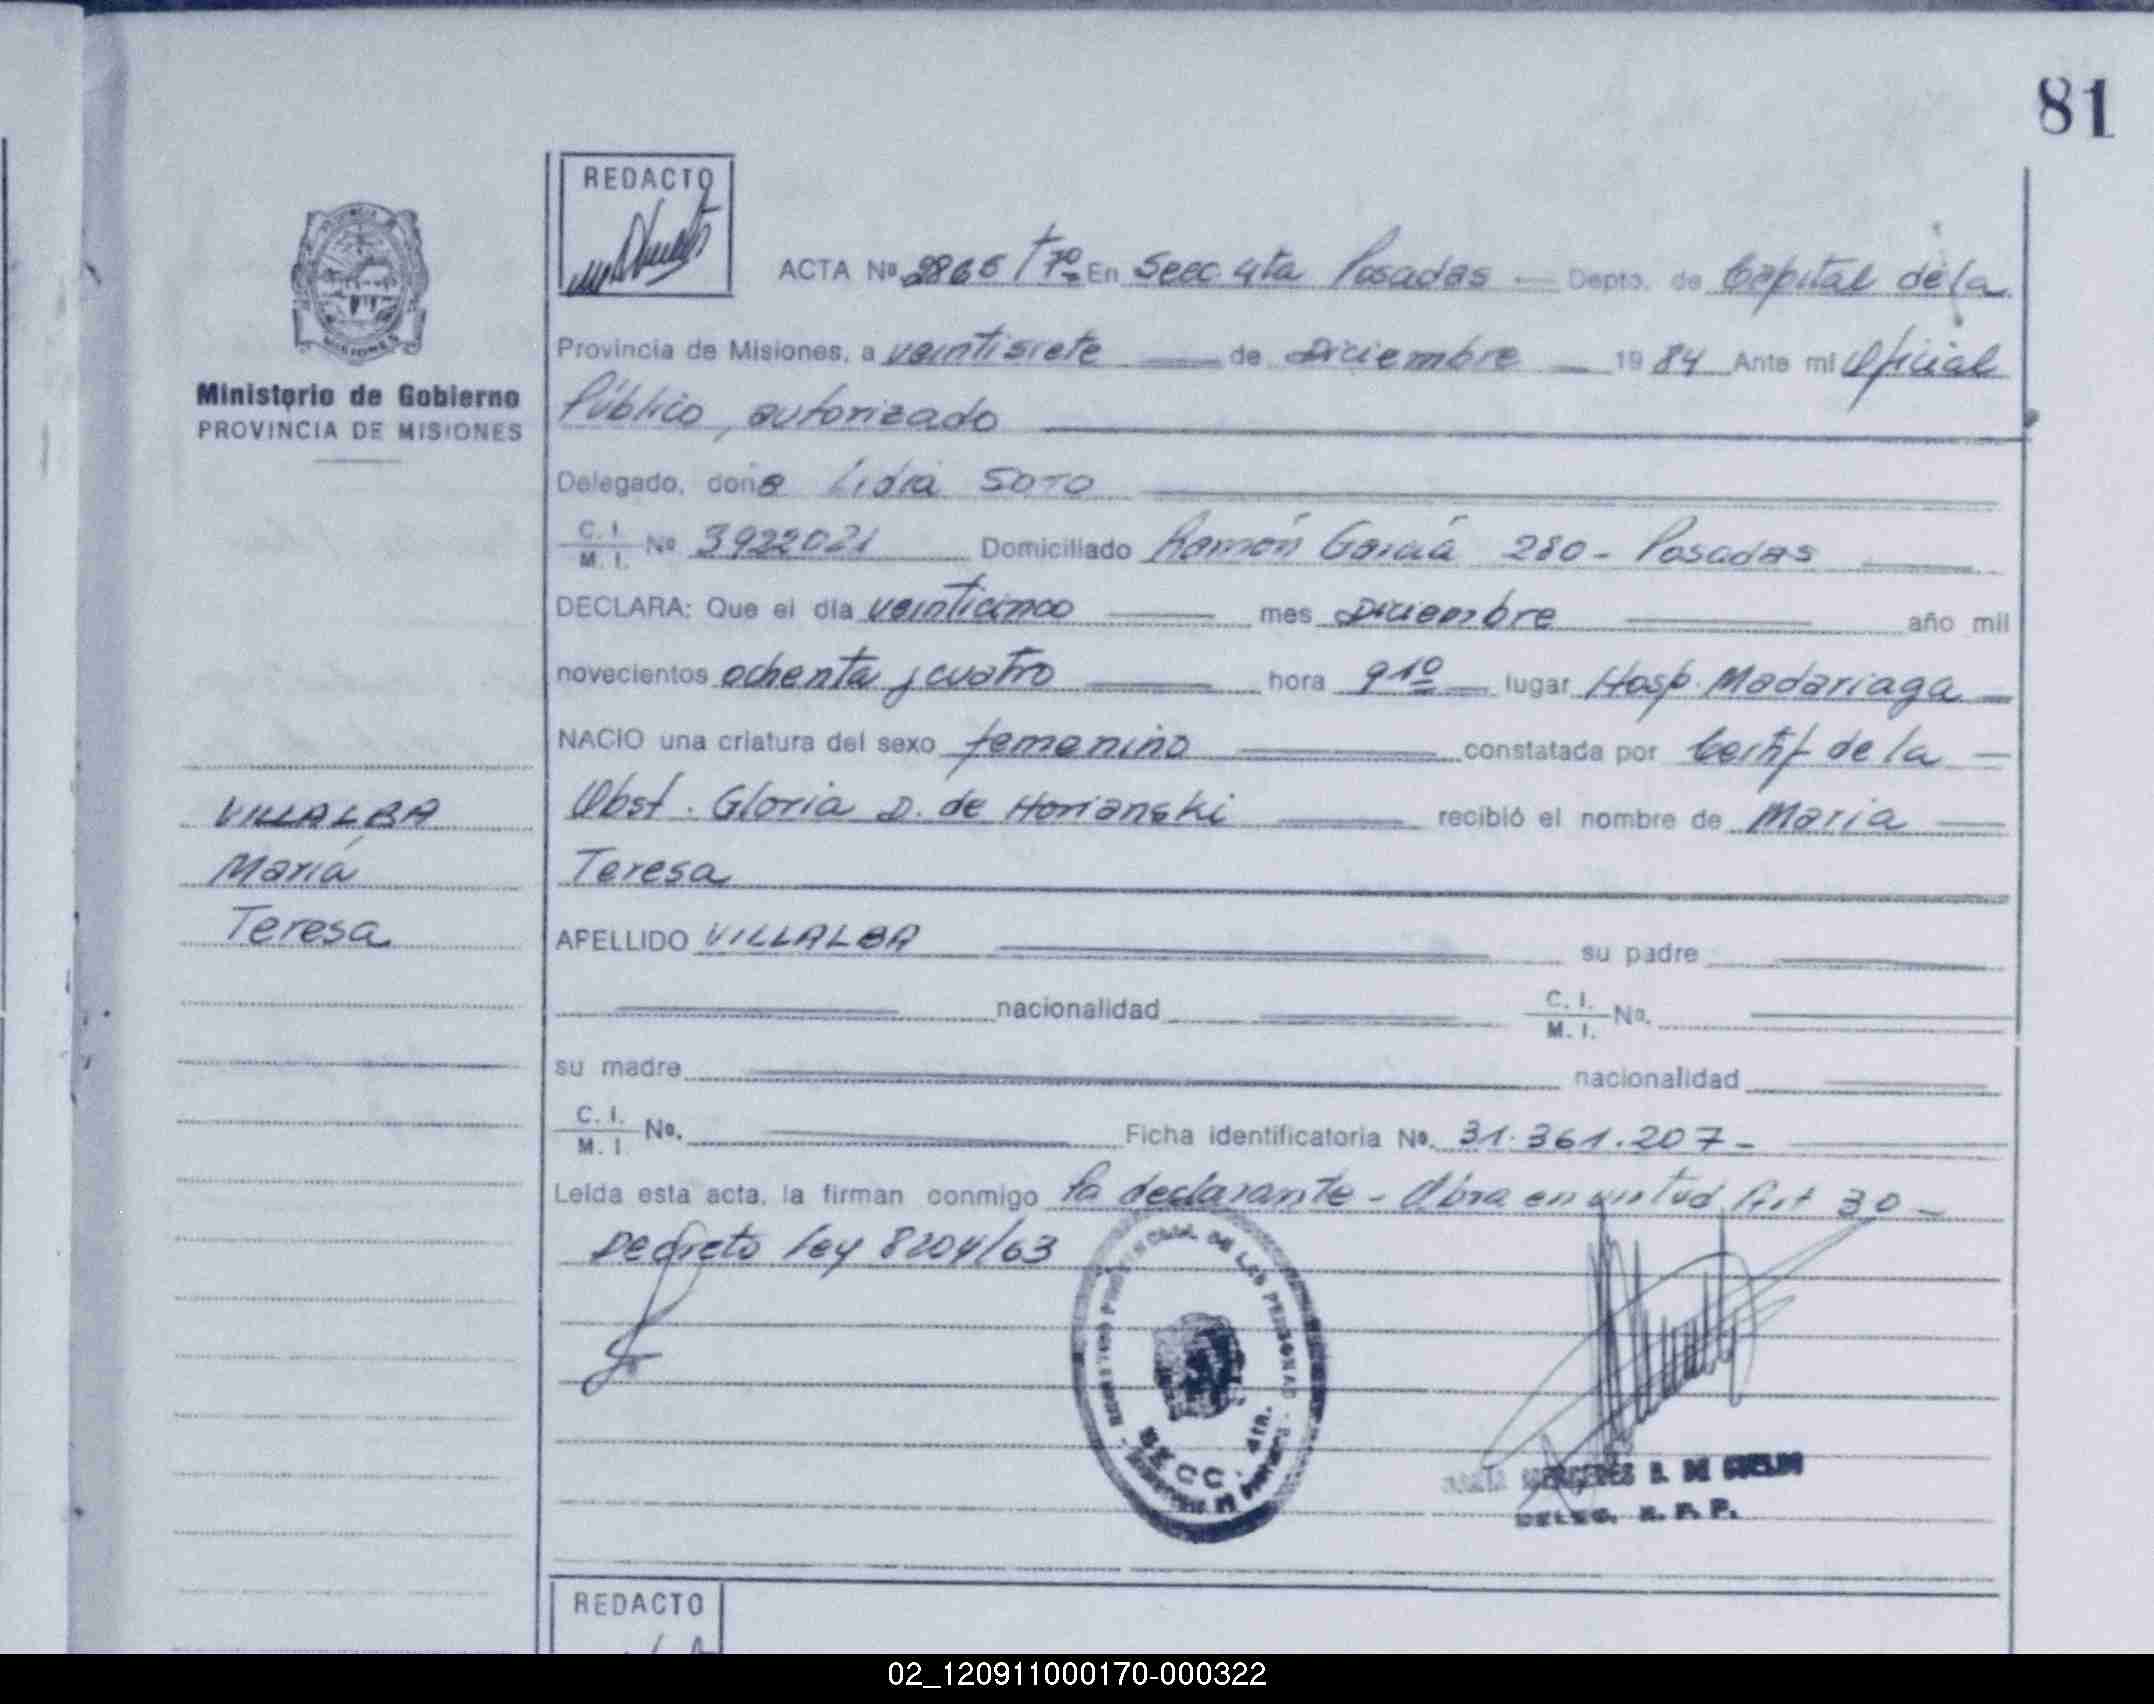 81
REDACTO
MISIONES
Ministerio de Gobierno
PROVINCIA DE MISIONES
ACTA Nº 2866 / Tº En Secc. 4ta Posadas — Depto. de Capital de la
Provincia de Misiones, a veintisiete — de Diciembre — 1984 Ante mi Oficial
Público, autorizado
Delegado, doña Lidia SOTO
C. I. / M. I. Nº 3922021 Domiciliado Ramón García 280 - Posadas
DECLARA: Que el día veinticinco — mes Diciembre — año mil
novecientos ochenta y cuatro — hora 9 10 — lugar Hosp. Madariaga —
NACIO una criatura del sexo femenino — constatada por Certif de la —
Obst. Gloria D. de Horianski — recibió el nombre de María —
Teresa
APELLIDO VILLALBA — su padre
nacionalidad C. I. / M. I. Nº.
su madre nacionalidad
C. I. / M. I. Nº. Ficha identificatoria Nº. 31.361.207 -
Leída esta acta, la firman conmigo la declarante - Obra en virtud Art 30 -
Decreto Ley 8204/63
VILLALBA
María
Teresa
DE LAS PERSONAS
SECC. 4ta.
MERCEDES B. DE
DELEG. R. P. P.
REDACTO
02_120911000170-000322